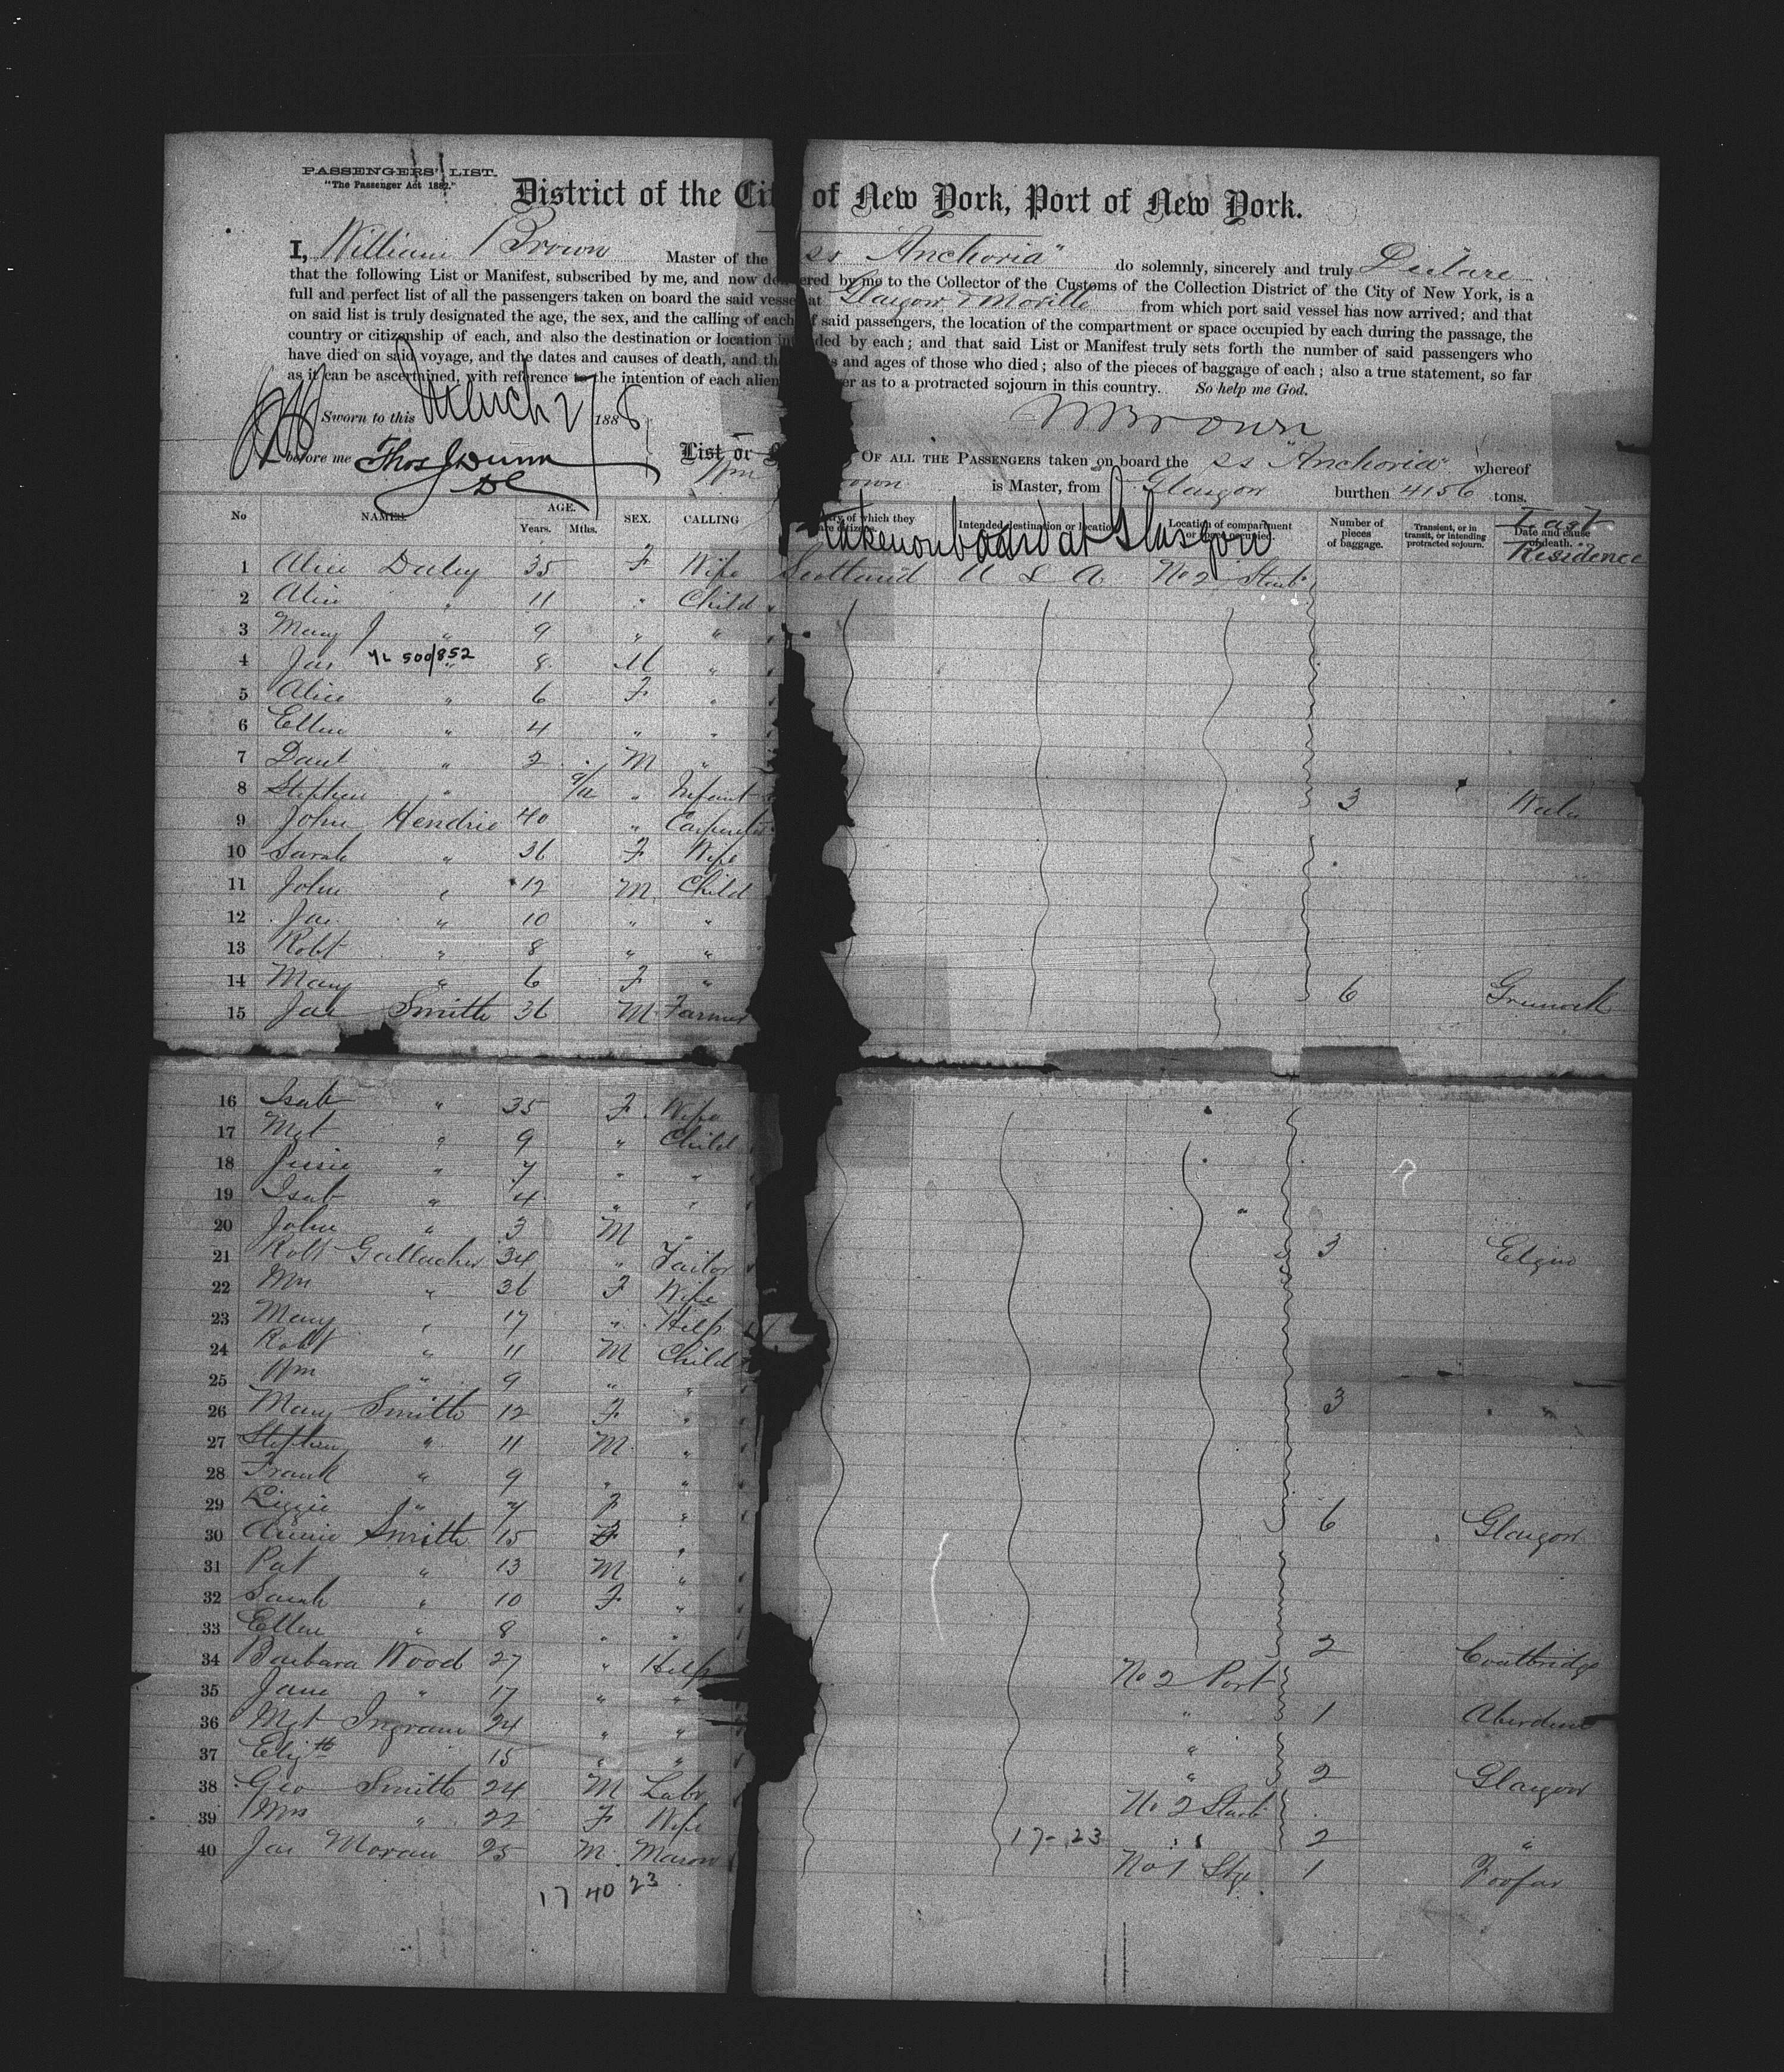 PASSENGERS' LIST.
"The Passenger Act 1882."
District of the Cit of New York, Port of New York.
I, William Brown Master of the ss "Anchoria" do solemnly, sincerely and truly Declare
that the following List or Manifest, subscribed by me, and now de ered by me to the Collector of the Customs of the Collection District of the City of New York, is a
full and perfect list of all the passengers taken on board the said vesse at Glasgow & Moville from which port said vessel has now arrived; and that
on said list is truly designated the age, the sex, and the calling of each f said passengers, the location of the compartment or space occupied by each during the passage, the
country or citizenship of each, and also the destination or location int ded by each; and that said List or Manifest truly sets forth the number of said passengers who
have died on said voyage, and the dates and causes of death, and th s and ages of those who died; also of the pieces of baggage of each; also a true statement, so far
as it can be ascertained, with reference to the intention of each alien er as to a protracted sojourn in this country. So help me God.
Sworn to this March 27 1888 WBrown
before me Thos J Dunn DC
List or OF ALL THE PASSENGERS taken on board the ss "Anchoria" whereof
Wm own is Master, from Glasgow burthen 4156 tons.
No NAMES. AGE. Years. Mths. SEX. CALLING ry of which they are citizens. Intended destination or location Location of compartment or space occupied. Number of pieces of baggage. Transient, or in transit, or intending protracted sojourn. Date and cause of death. Last Residence
taken on board at Glasgow
1 Alice Daley 35 F Wife Scotland U S A No 2 Starb
2 Alice " 11 " Child
3 Mary J " 9 " "
4 Jas " 8 M " 500/852
5 Alice " 6 F "
6 Ellen " 4 " "
7 Danl " 2 M "
8 Stephen " 9/12 " Infant 3
9 John Hendrie 40 " Carpenter
10 Sarah " 36 F Wife
11 John " 12 M Child
12 Jas " 10 " "
13 Robt " 8 " "
14 Mary " 6 F " 6 Greenock
15 Jas Smith 36 M Farmer
16 Isab " 35 F Wife
17 Mgt " 9 " Child
18 Jessie " 7 " "
19 Isab " 4 " "
20 John " 3 M " 3 Elgin
21 Robt Gallacher 34 " Tailor
22 Mrs " 36 F Wife
23 Mary " 17 " Help
24 Robt " 11 M Child
25 Wm " 9 " " 3 "
26 Mary Smith 12 F "
27 Stephen " 11 M "
28 Frank " 9 " "
29 Lizzie " 7 F " 6 Glasgow
30 Annie Smith 15 F "
31 Pat " 13 M "
32 Sarah " 10 F "
33 Ellen " 8 " " 2 Coatbridge
34 Barbara Wood 27 " Help No 2 Port
35 Jane " 17 " " " 1 Aberdeen
36 Mgt Ingram 24 " " "
37 Elizth 15 " " " 2 Glasgow
38 Geo Smith 24 M Labr No 2 Starb
39 Mrs " 22 F Wife 17-23 " 2 "
40 Jas Moran 25 M Mason No 1 Stge 1 Forfar
17 40 23